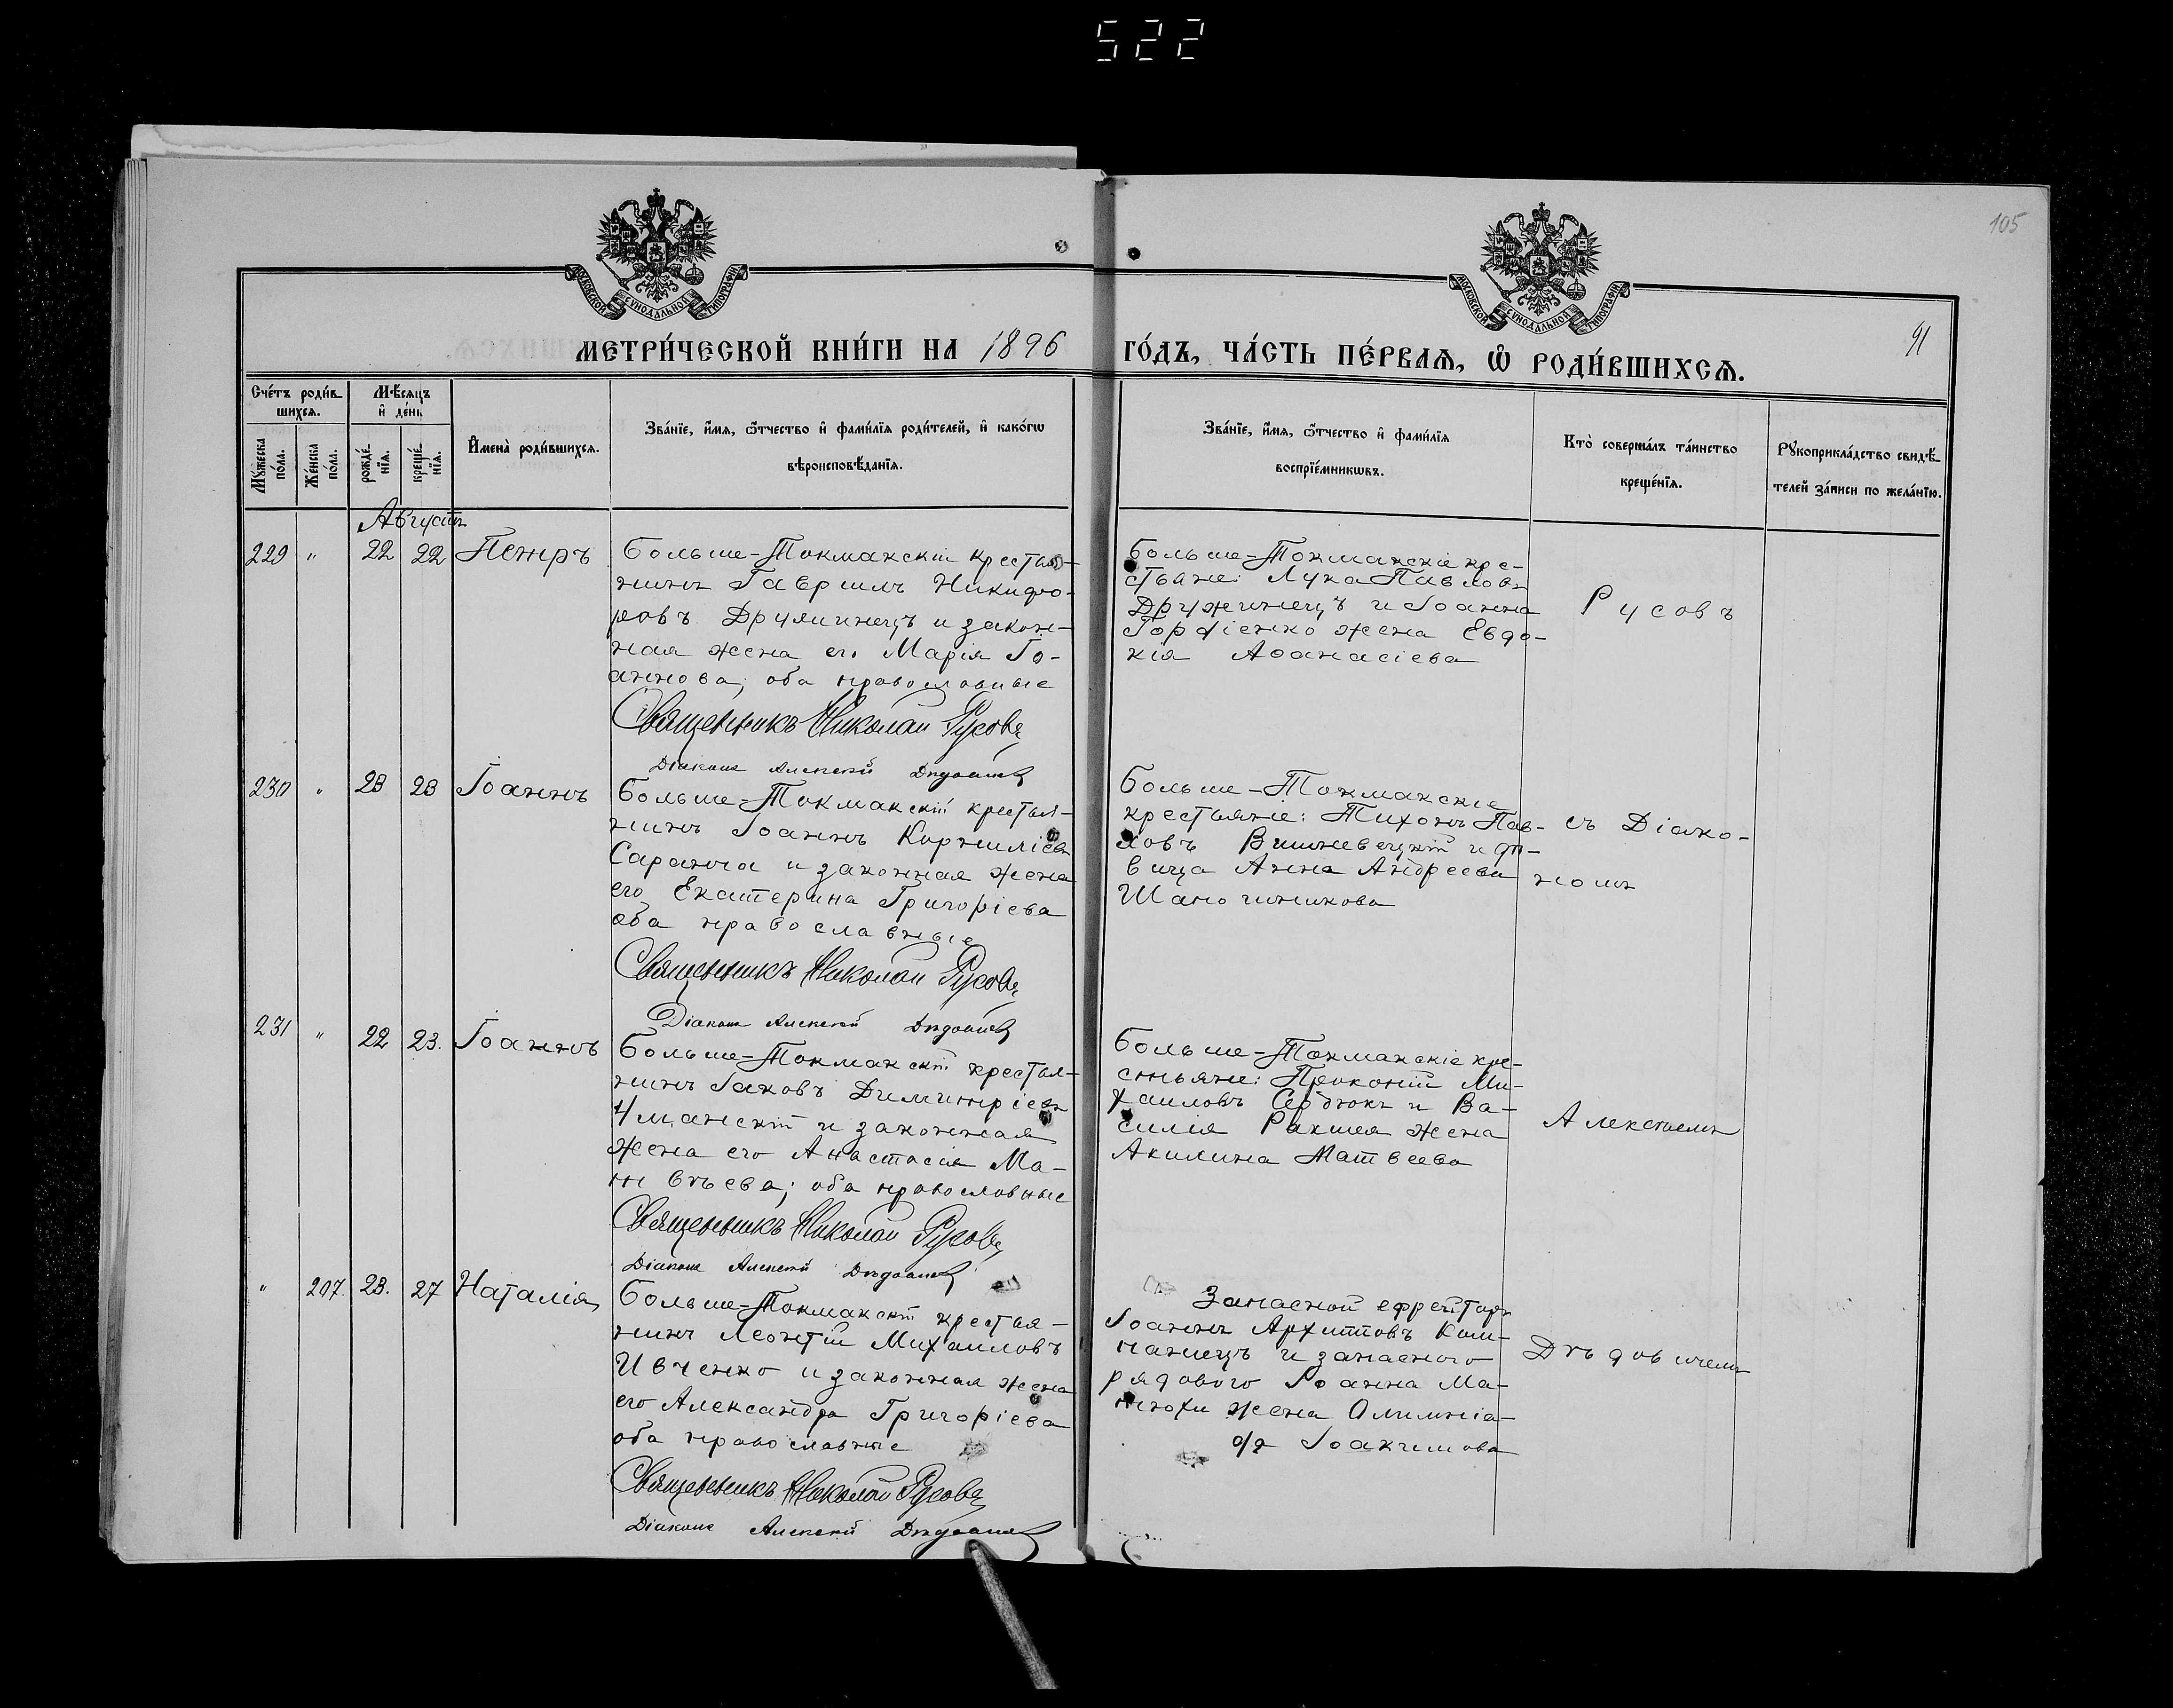 522
105
91
МОСКОВСКОЙ СУНОДАЛЬНОЙ ТИПОГРАФІИ
МОСКОВСКОЙ СУНОДАЛЬНОЙ ТИПОГРАФІИ
МЕТРИ́ЧЕСКОЙ КНИ́ГИ НА 1896
ГО́ДЪ, ЧА́СТЬ ПЕ́РВАѦ, Ѡ҆ РОДИ́ВШИХСѦ.
Сче́тъ роди́в-
шихсѧ.
Мꙋ́жеска по́ла.
Же́нска по́ла.
Мѣ́сѧцъ
и҆ де́нь
рожде́-
нїѧ.
креще́-
нїѧ.
И҆мена̀ роди́вшихсѧ.
Зва́нїе, и҆́мѧ, ѻ҆́тчество и҆ фами́лїѧ роди́телей, и҆ како́гѡ
вѣроисповѣ́данїѧ.
Зва́нїе, и҆́мѧ, ѻ҆́тчество и҆ фами́лїѧ
воспрїе́мникѡвъ.
Кто̀ соверша́лъ та́инство
креще́нїѧ.
Рꙋкоприкла́дство свидѣ́-
телей за́писи по жела́нїю.
Августъ
229 " 22 22 Петръ
Больше-Токмакскій крестья-
нинъ Гавріилъ Никифо-
ровъ Дружинецъ и закон-
ная жена его Марія Іо-
аннова; оба православные
Священникъ Николай Русовъ
Діаконъ Алексѣй Дѣдовичъ
Больше-Токмакскіе кре-
стьяне: Лука Павловъ
Дружинецъ и Іоанна
Горфіенко жена Евдо-
кія Аѳанасіева
Русовъ
230 " 23 23 Іоаннъ
Больше-Токмакскій крестья-
нинъ Іоаннъ Корниліевъ
Саранча и законная жена
его Екатерина Григоріева
оба православные
Священникъ Николай Русовъ
Діаконъ Алексѣй Дѣдовичъ
Больше-Токмакскіе
крестьяне: Тихонъ Пав-
ловъ Вишневецкій и дѣ-
вица Анна Андреева
съ Діако-
номъ
231 " 22 23. Іоаннъ
Больше-Токмакскій крестья-
нинъ Іаковъ Димитріевъ
Уманскій и законная
жена его Анастасія Ма-
твѣева; оба православные
Священникъ Николай Русовъ
Діаконъ Алексѣй Дѣдовичъ
Больше-Токмакскіе кре-
стьяне: Прокопій Ми-
хаиловъ Сердюкъ и Ва-
силія Ракши жена
Акилина Матвеева
Алексѣемъ
" 207. 23. 27 Наталія
Больше-Токмакскій крестья-
нинъ Леонтій Михаиловъ
Ивченко и законная жена
его Александра Григоріева
оба православные
Священникъ Николай Русовъ
Діаконъ Алексѣй Дѣдовичъ
Запасной ефрейторъ
Іоаннъ Архипповъ Ком-
панецъ и запасного
рядового Іоанна Ма-
тюхи жена Олимпіа-
да Іоакимова
Дѣдовичемъ